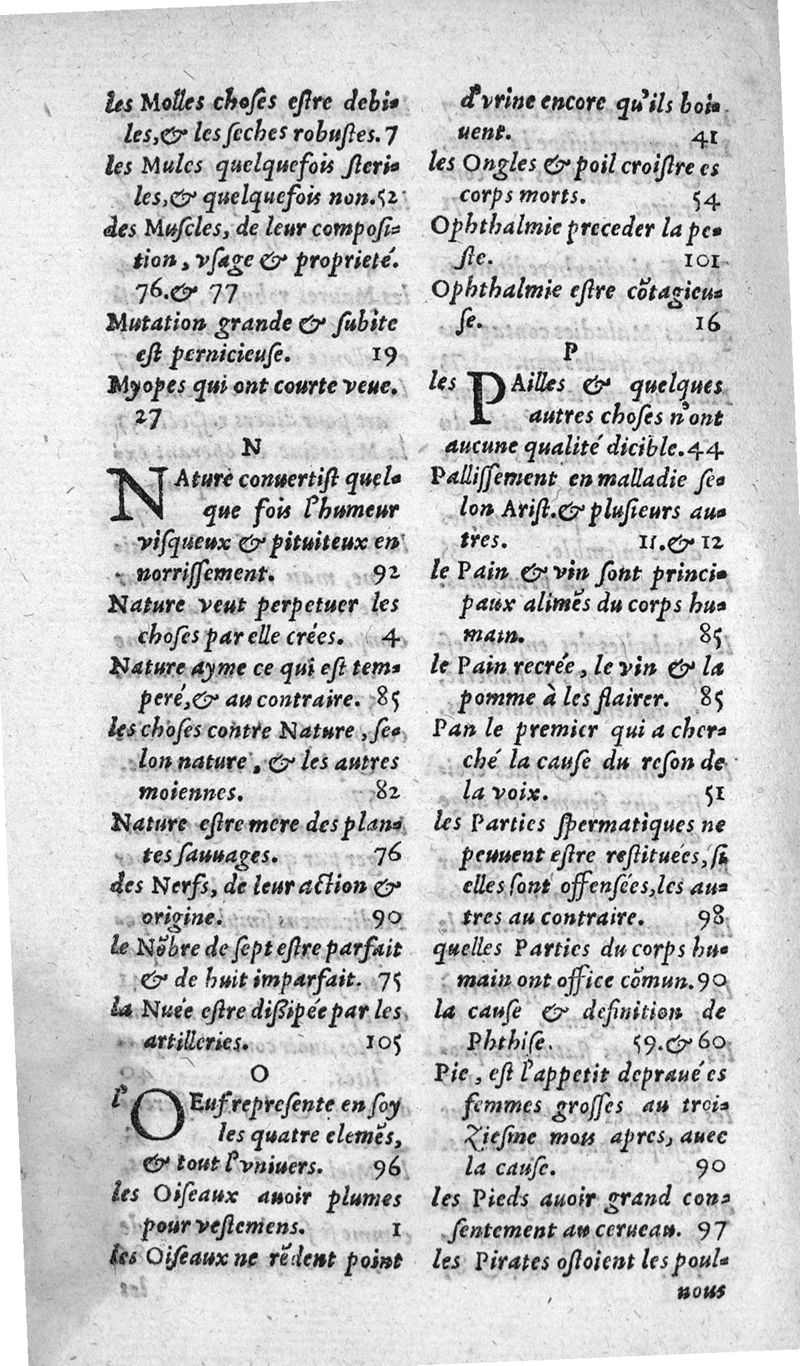 les Molles choses estre debi-
les,& les seches robustes. 7
les Mules quelquefois steri-
les,& quelquefois non. 52
des Muscles, de leur composi-
tion, vsage & proprieté.
76.& 77
Mutation grande & subite
est pernicieuse. 19
Myopes qui ont courte veue.
27
N
NAture conuertist quel-
que fois l'humeur
visqueux & pituiteux en
norrissement. 92
Nature veut perpetuer les
choses par elle crées. 4
Nature ayme ce qui est tem-
peré,& au contraire. 85
les choses contre Nature, se-
lon nature, & les autres
moiennes. 82
Nature estre mere des plan-
tes sauuages. 76
des Nerfs, de leur action &
origine. 90
le Nõbre de sept estre parfait
& de huit imparfait. 75
la Nuée estre dißipée par les
artilleries. 105
O
l'OEuf represente en soy
les quatre elemẽs,
& tout l'vniuers. 96
les Oiseaux auoir plumes
pour vestemens. 1
les Oiseaux ne rẽdent point
d'vrine encore qu'ils boi-
uent. 41
les Ongles & poil croistre es
corps morts. 54
Ophthalmie preceder la pe-
ste. 101
Ophthalmie estre cõtagieu-
se. 16
P
les PAilles & quelques
autres choses n'ont
aucune qualité dicible. 44
Pallissement en malladie se-
lon Arist.& plusieurs au-
tres. 11.& 12
le Pain & vin sont princi-
paux alimẽs du corps hu-
main. 85
le Pain recrée, le vin & la
pomme à les flairer. 85
Pan le premier qui a cher-
ché la cause du reson de
la voix. 51
les Parties spermatiques ne
peuuent estre restituées, si
elles sont offensées, les au-
tres au contraire. 98
quelles Parties du corps hu-
main ont office cõmun. 90
la cause & definition de
Phthise. 59.& 60
Pie, est l'appetit depraué es
femmes grosses au troi-
ziesme mois apres, auec
la cause. 90
les Pieds auoir grand con-
sentement au cerueau. 97
les Pirates ostoient les poul-
nous